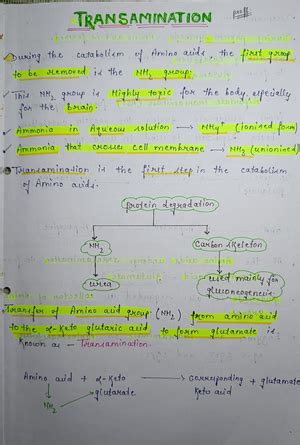 TRANSAMINATION
During the catabolism of Amino acids the first group
to be removed is the NH2 group.
This NH2 group is Highly toxic for the body, especially
for the brain.
Ammonia in Aqueous solution → NH4+ (ionised form)
Ammonia that crosses cell membrane → NH3 (unionised)
Transamination is the first step in the catabolism
of Amino acids.
protein degradation
NH2
Carbon skeleton
urea
used mainly for
gluconeogenesis
Transfer of Amino acid group (NH2) from amino acid
to the α-Keto glutaric acid to form glutamate is
known as - Transamination.
Amino acid + α-Keto → corresponding + glutamate
NH2 glutarate Keto acid